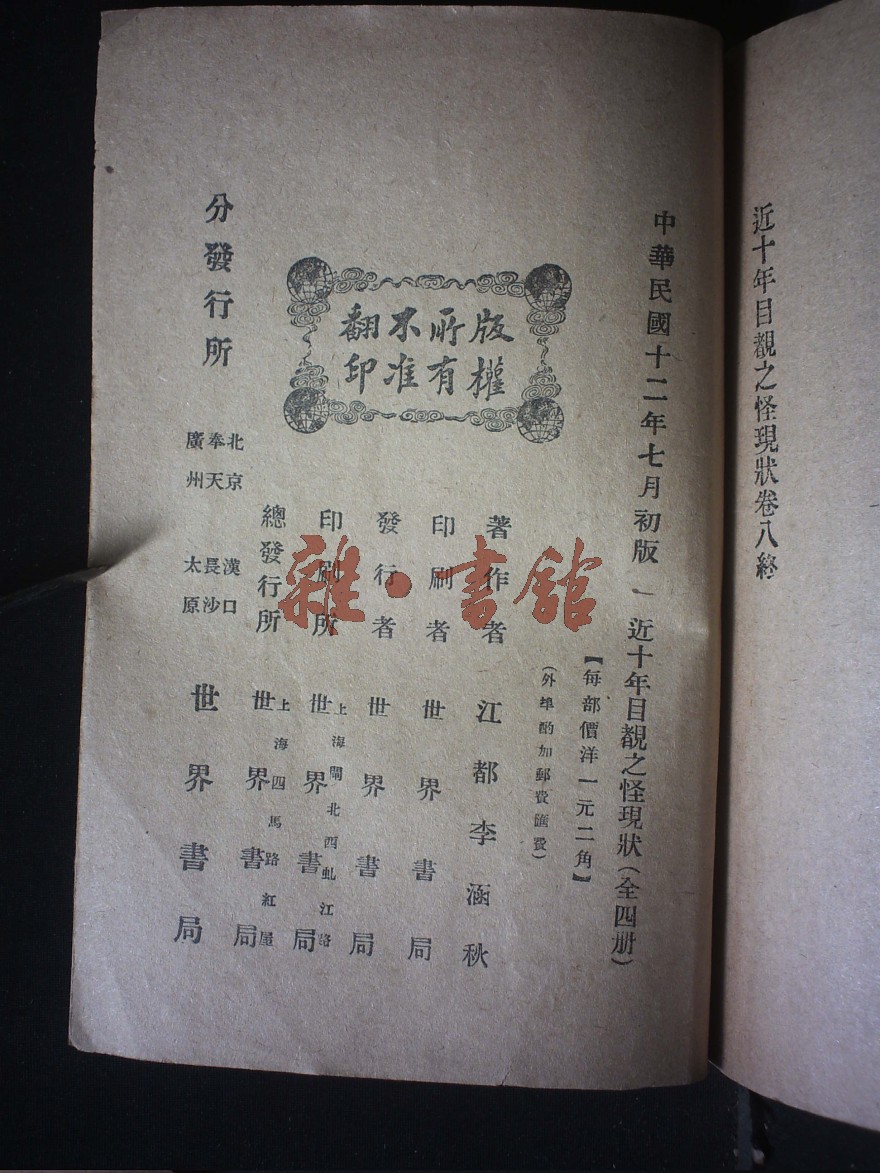 近十年目覩之怪現狀卷八終
中華民國十二年七月初版
近十年目覩之怪現狀（全四册）
【每部價洋一元二角】
（外埠酌加郵費匯費）
版權
所有
不准
翻印
著作者 江都李涵秋
印刷者 世界書局
發行者 世界書局
印刷所 上海閘北西虬江路 世界書局
總發行所 上海四馬路紅屋 世界書局
分發行所 北京 奉天 廣州 漢口 長沙 太原 世界書局
雜·書館